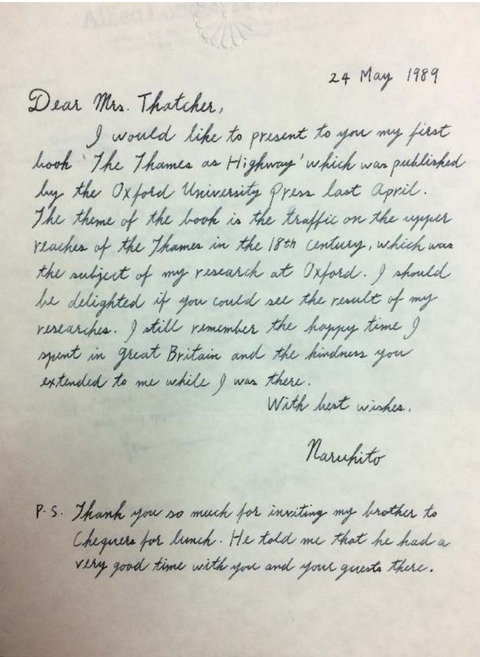 24 May 1989
Dear Mrs. Thatcher,
I would like to present to you my first
book 'The Thames as Highway' which was published
by the Oxford University Press last April.
The theme of the book is the traffic on the upper
reaches of the Thames in the 18th century, which was
the subject of my research at Oxford. I should
be delighted if you could see the result of my
researches. I still remember the happy time I
spent in Great Britain and the kindness you
extended to me while I was there.
With best wishes,
Naruhito
P.S. Thank you so much for inviting my brother to
Chequers for lunch. He told me that he had a
very good time with you and your guests there.